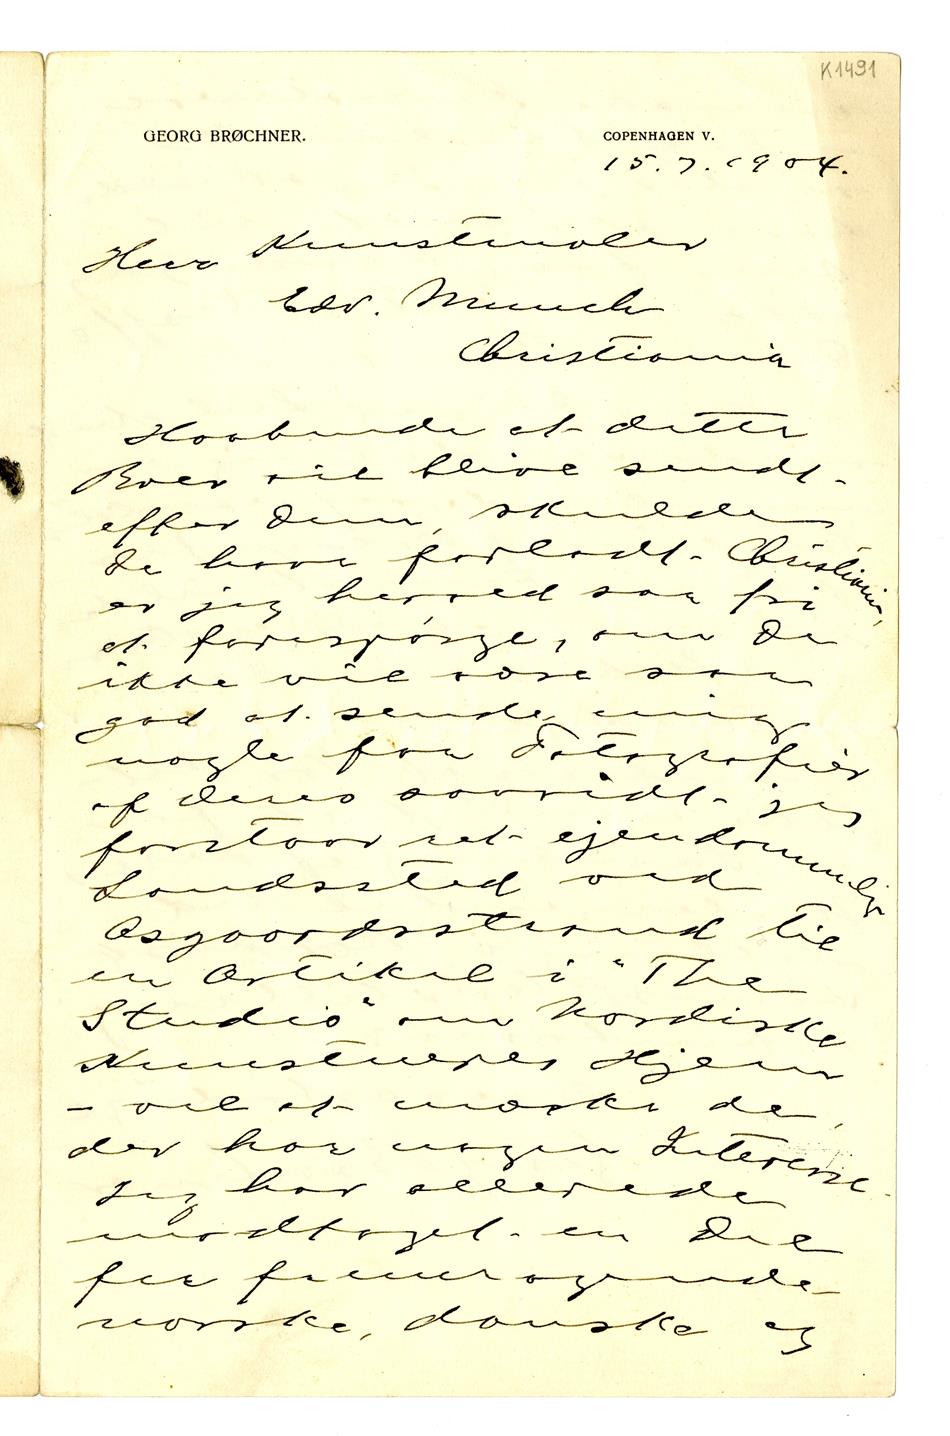 K1491
GEORG BRØCHNER.
COPENHAGEN V.
15.7.1904.
Herr Kunstmaler
Edv. Munch
Christiania
Haabende at dette
Brev vil blive sendt
efter Dem, skulde
De have forladt Christiania,
er jeg herved saa fri
at forespørge, om De
ikke vil være saa
god at sende mig
nogle faa Fotografier
af Deres saavidt jeg
forstaar ret ejendommelige
Landssted ved
Asgaardsstrand til
en Artikel i "The
Studio" om Nordiske
Kunstneres Hjem
– vel at mærke de,
der har nogen Interesse.
Jeg har allerede
modtaget en Del
fra fremragende
norske, danske og